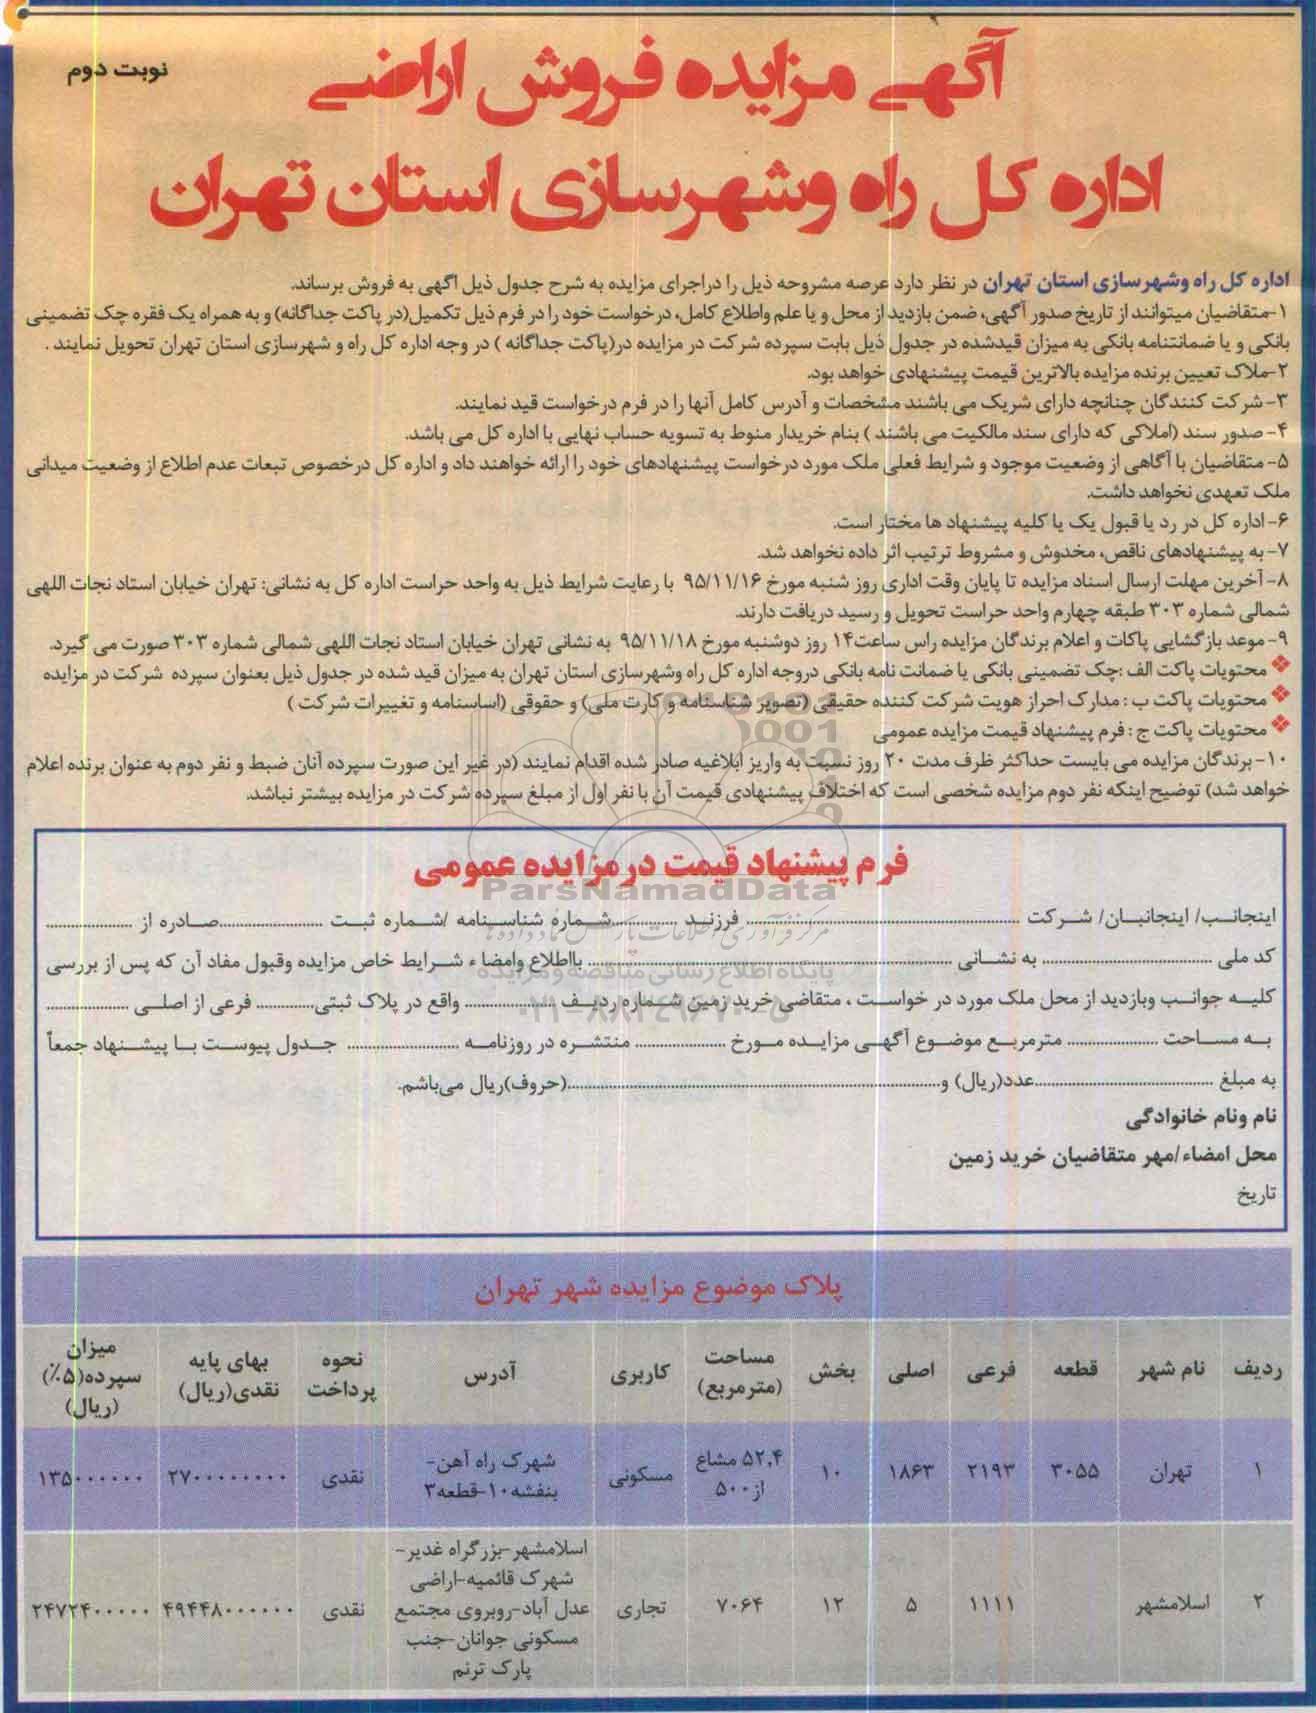 نوبت دوم
آگهی مزایده فروش اراضی
اداره کل راه وشهرسازی استان تهران
اداره کل راه وشهرسازی استان تهران در نظر دارد عرصه مشروحه ذیل را دراجرای مزایده به شرح جدول ذیل آگهی به فروش برساند.
۱-متقاضیان میتوانند از تاریخ صدور آگهی، ضمن بازدید از محل و یا علم واطلاع کامل، درخواست خود را در فرم ذیل تکمیل(در پاکت جداگانه) و به همراه یک فقره چک تضمینی
بانکی و یا ضمانتنامه بانکی به میزان قیدشده در جدول ذیل بابت سپرده شرکت در مزایده در(پاکت جداگانه ) در وجه اداره کل راه و شهرسازی استان تهران تحویل نمایند .
۲-ملاک تعیین برنده مزایده بالاترین قیمت پیشنهادی خواهد بود.
۳- شرکت کنندگان چنانچه دارای شریک می باشند مشخصات و آدرس کامل آنها را در فرم درخواست قید نمایند.
۴- صدور سند (املاکی که دارای سند مالکیت می باشند ) بنام خریدار منوط به تسویه حساب نهایی با اداره کل می باشد.
۵- متقاضیان با آگاهی از وضعیت موجود و شرایط فعلی ملک مورد درخواست پیشنهادهای خود را ارائه خواهند داد و اداره کل درخصوص تبعات عدم اطلاع از وضعیت میدانی
ملک تعهدی نخواهد داشت.
۶- اداره کل در رد یا قبول یک یا کلیه پیشنهاد ها مختار است.
۷- به پیشنهادهای ناقص، مخدوش و مشروط ترتیب اثر داده نخواهد شد.
۸- آخرین مهلت ارسال اسناد مزایده تا پایان وقت اداری روز شنبه مورخ ۹۵/۱۱/۱۶ با رعایت شرایط ذیل به واحد حراست اداره کل به نشانی: تهران خیابان استاد نجات اللهی
شمالی شماره ۳۰۳ طبقه چهارم واحد حراست تحویل و رسید دریافت دارند.
۹- موعد بازگشایی پاکات و اعلام برندگان مزایده راس ساعت۱۴ روز دوشنبه مورخ ۹۵/۱۱/۱۸ به نشانی تهران خیابان استاد نجات اللهی شمالی شماره ۳۰۳ صورت می گیرد.
❖ محتویات پاکت الف :چک تضمینی بانکی یا ضمانت نامه بانکی دروجه اداره کل راه وشهرسازی استان تهران به میزان قید شده در جدول ذیل بعنوان سپرده شرکت در مزایده
❖ محتویات پاکت ب : مدارک احراز هویت شرکت کننده حقیقی (تصویر شناسنامه و کارت ملی) و حقوقی (اساسنامه و تغییرات شرکت )
❖ محتویات پاکت ج : فرم پیشنهاد قیمت مزایده عمومی
۱۰- برندگان مزایده می بایست حداکثر ظرف مدت ۲۰ روز نسبت به واریز ابلاغیه صادر شده اقدام نمایند (در غیر این صورت سپرده آنان ضبط و نفر دوم به عنوان برنده اعلام
خواهد شد) توضیح اینکه نفر دوم مزایده شخصی است که اختلاف پیشنهادی قیمت آن با نفر اول از مبلغ سپرده شرکت در مزایده بیشتر نباشد.
فرم پیشنهاد قیمت در مزایده عمومی
ParsNamadData
اینجانب/ اینجانبان/ شرکت ............ فرزند ............شماره شناسنامه /شماره ثبت ............صادره از ............
مرکز فرآوری اطلاعات پارس نماد داده ها
کد ملی ............ به نشانی ............ بااطلاع وامضا ء شرایط خاص مزایده وقبول مفاد آن که پس از بررسی
پایگاه اطلاع رسانی مناقصه و مزایده
کلیه جوانب وبازدید از محل ملک مورد در خواست ، متقاضی خرید زمین شماره ردیف ............ واقع در پلاک ثبتی............ فرعی از اصلی ............
۰۲۱-۸۸۳۴۹۶۷۰-۵
به مساحت ............ مترمربع موضوع آگهی مزایده مورخ ............ منتشره در روزنامه ............ جدول پیوست با پیشنهاد جمعاً
به مبلغ ............عدد(ریال) و............(حروف)ریال می‌باشم.
نام ونام خانوادگی
محل امضاء/مهر متقاضیان خرید زمین
تاریخ
پلاک موضوع مزایده شهر تهران
ردیف نام شهر قطعه فرعی اصلی بخش مساحت (مترمربع) کاربری آدرس نحوه پرداخت بهای پایه نقدی(ریال) میزان سپرده(۵٪) (ریال)
۱ تهران ۳۰۵۵ ۲۱۹۳ ۱۸۶۳ ۱۰ ۵۲,۴ مشاع از۵۰۰ مسکونی شهرک راه آهن-بنفشه۱۰-قطعه۳ نقدی ۲۷۰۰۰۰۰۰۰۰ ۱۳۵۰۰۰۰۰۰
۲ اسلامشهر ۱۱۱۱ ۵ ۱۲ ۷۰۶۴ تجاری اسلامشهر-بزرگراه غدیر-شهرک قائمیه-اراضی عدل آباد-روبروی مجتمع مسکونی جوانان-جنب پارک ترنم نقدی ۴۹۴۴۸۰۰۰۰۰۰ ۲۴۷۲۴۰۰۰۰۰